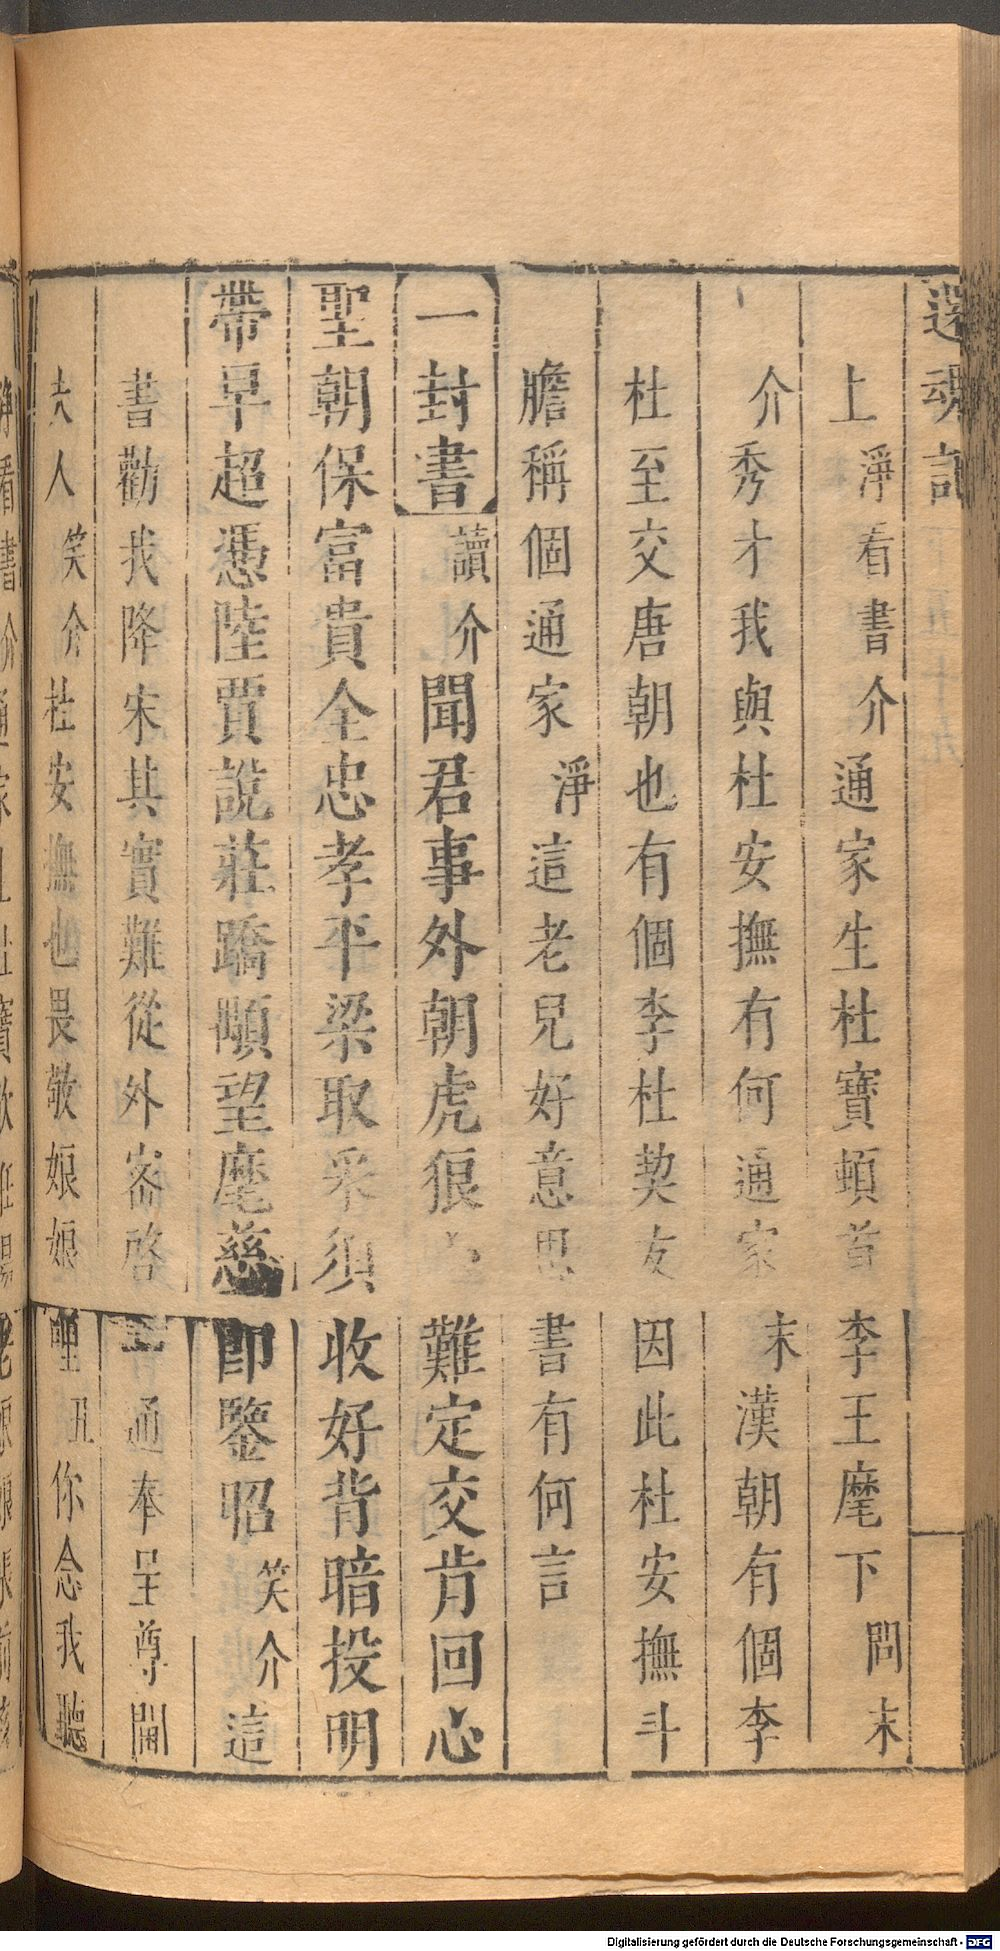 還魂記
上淨看書介通家生杜寶頓首李王麾下問末
介秀才我與杜安撫有何通家末漢朝有個李
杜至交唐朝也有個李杜契友因此杜安撫斗
膽稱個通家淨這老兒好意思書有何言
一封書讀介聞君事外朝虎狼難定交肯回心
聖朝保富貴全忠孝平梁取采須收好背暗投明
帶早超憑陸賈說莊蹻顒望麾慈即鑒昭笑介這
書勸我降宋其實難從外密啓一通奉呈尊閫
夫人笑介杜安撫也畏敬娘娘哩丑你念我聽
Digitalisierung gefördert durch die Deutsche Forschungsgemeinschaft - DFG